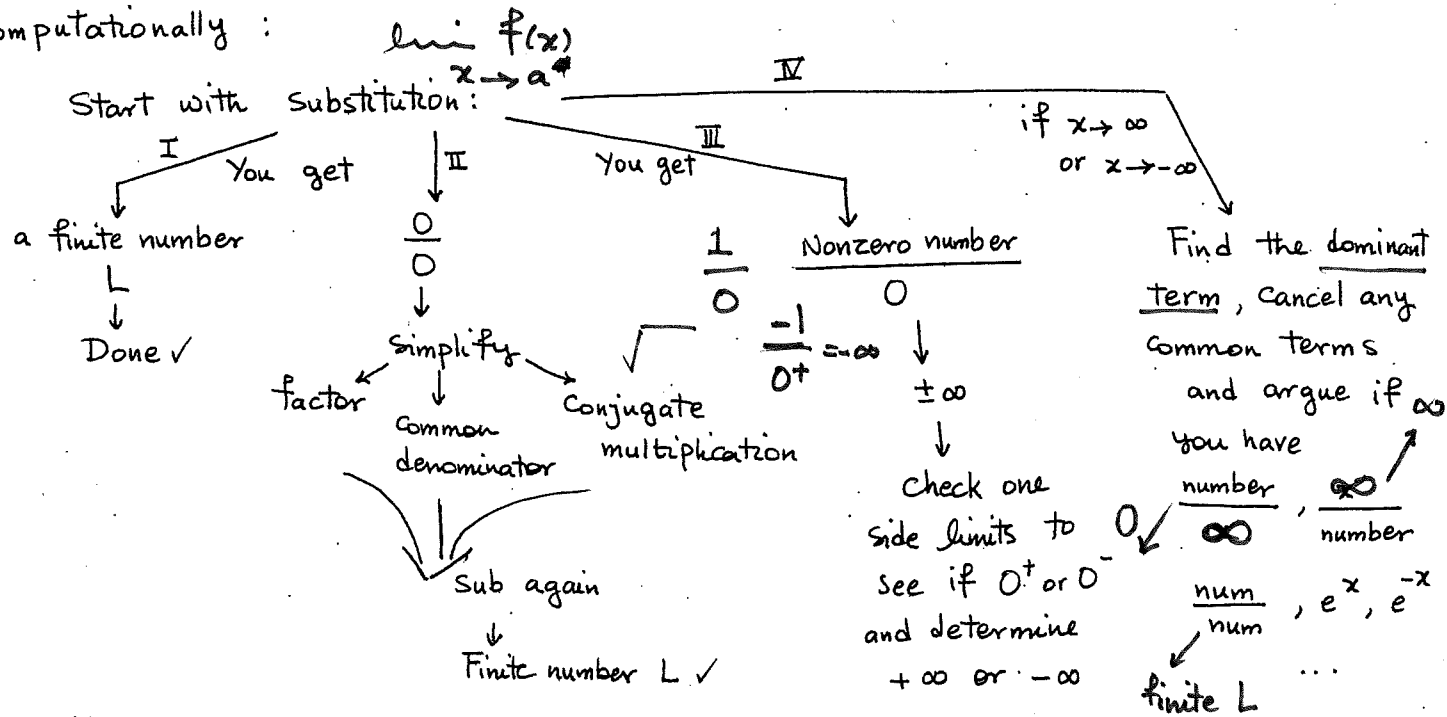 omputationally :
lim f(x)
x → a
Start with Substitution:
I
You get
a finite number
L
↓
Done ✓
II
0/0
↓
Simplify
factor
Common
denominator
Conjugate
multiplication
√
Sub again
↓
Finite number L ✓
III
You get
1/0
Nonzero number
0
-1/0⁺ = -∞
↓
± ∞
↓
Check one
side limits to
see if 0⁺ or 0⁻
and determine
+ ∞ or - ∞
IV
if x → ∞
or x → -∞
Find the dominant
term, Cancel any
Common terms
and argue if
you have
number/∞ , ∞/number
0
∞
num/num , eˣ, e⁻ˣ
...
finite L